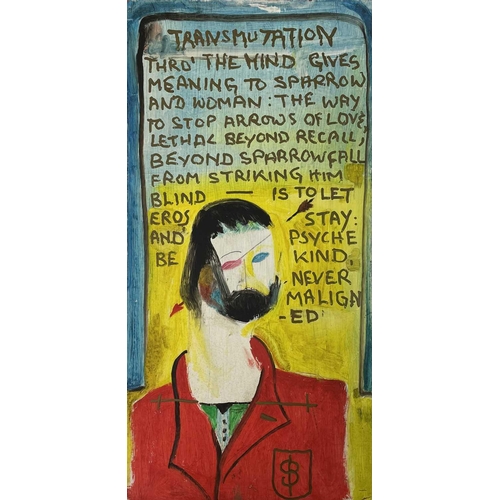 TRANSMUTATION
THRO' THE MIND GIVES
MEANING TO SPARROW
AND WOMAN: THE WAY
TO STOP ARROWS OF LOVE,
LETHAL BEYOND RECALL,
BEYOND SPARROWFALL
FROM STRIKING HIM
BLIND — IS TO LET
EROS STAY:
AND PSYCHE
BE KIND,
NEVER
MALIGN
-ED